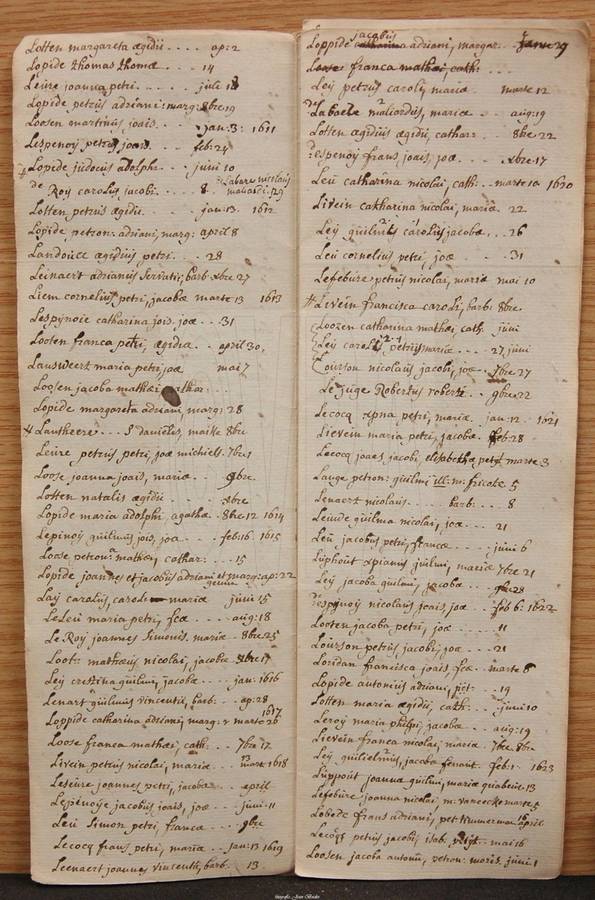 Lotten margareta ægidii .... ap: 2
Lopide thomas thomæ .... 14
Leire joanna petri .... julii 18
Lopide petrus adriani: marg: 8bre 19
Loosen martinus joais .. jan: 3: 1611
Lespenoÿ petrus joais .. feb: 24
Lopide judocus adolphi ... junii 10
de Roÿ carolus jacobi: .. 8
Labare nicolaus
Lotten petrus ægidii ... jan: 13. 1612
Lopide petron: adriani, marg: april 8
Landouce ægidius petri ... 28
Leinaert adrianus servatii, barb: xbre 27
Liem cornelius petri, jacobæ marte 13 1613
Lespijnoie catharina jois, joæ ... 31
Looten franca petri, ægidia .. april 30,
Lauwseert maria petri, joæ mai 7
Loosen jacoba mathæi cathar
Lopide margareta adriani, marg: 28
Lantheere ... danielis, maike 8bre
Leire petrus petri, joæ michiels. 7bre 1
Loose joanna joais, mariæ .. 9bre.
Lotten natalis ægidii ... xbre
Lopide maria adolphi, agathæ .. 8bre 12 1614
Lepinoÿ guilmus jois, joa ... feb: 16. 1615
Loose petron: mathæi, cathar: ... 15
Lopide joannes et jacobus adriani et marg: ap: 22
gemini
Laÿ carolus, caroli mariæ junii 15
Le Leu maria petri, fcæ .. aug: 18
Le Roÿ joannes simonis, mariæ .. 8bre 25
Loots mathæus nicolai, jacobæ xbre 17
Leÿ crestina guilmi, jacobæ ... jan: 1616
Lenart guilmus vincentii, barb: .. ap: 28
1617
Loppide catharina adriani, marg: marte 26
Loose franca mathæi, cath: ... 7bre 17
Livein petrus nicolai, mariæ ... marte 1618
Leseire joannes petri, jacobæ .... april
Lespenoÿe jacobus joais, joæ ... junii 11
Leu Simon petri, francæ .... 9bre
Lecocq frans petri, mariæ .. jan: 13 1619
Leenaert joannes vincentii, barb. .. 13
jacobus
Loppide adriani, margar: .. Janu 29
franca mathæi, cath:
Leÿ petrus caroli, mariæ marte 12
de Labaele maliardus, mariæ .. aug: 19
Lotten ægidius ægidii, cathar: .. 8bre 22
Despenoÿ frans, joais, joæ ... xbre 17
Leu catharina nicolai, cath: .. marte 10 1620
Livein catharina nicolai, mariæ 22
Leÿ guilmus carolus jacobæ ... 26
Leu cornelius petri, joæ ... 31
Lefebure petrus nicolai, mariæ mai 10
Livein francisca caroli, barb: 8bre
Loozen catharina mathæi, cath. junii
Leÿ caroli petrus mariæ ... 27 junii
Lourson nicolaus jacobi, joæ .. 7bre 27
Le juge Robertus roberti ... 9bre 22
Lecocq petri, mariæ. jan: 12 . 1621
Lievein maria petri, jacobæ. feb 28
Lecocq joaes jacobi, elisabethæ petit marte 3
Lauge petron: guilmi ill: m: fricke 5
Lenaert nicolaus .... barb: ... 8
Leeude guilma nicolai, joæ .. 21
Leu jacobus petri, francæ .... junii 6
Luphout xpianus guilmi, mariæ 7bre 21
Leÿ jacoba guilmi, jacobæ .. 9bre 28
Despijnoÿ nicolaus joais, joæ .. feb 6: 1622
Looten jacoba petri, joæ ... 11
Lourson petrus jacobi, joæ .. 21
Loridan francisca joais, fcæ .. marte 8
Lopide antonius adriani, pet: .. 19
Lotten maria ægidii, cath: ... junii 10
Leroÿ maria philpi, jacobæ .. aug: 19
Lievein franca nicolai, mariæ 7bre. 8bre.
Leÿ guilielmus, jacobæ fenant. feb: 1. 1623
Luppout joanna guilmi, mariæ quabeue. 13
Lefebure joanna nicolai, m: vaneecke marte 5
Lobede frans adriani, pet: kunneman 16 april
Lecocq petrus jacobi, isab: petit. mai 16
Loosen jacoba antonii, petron: moris. junii 1